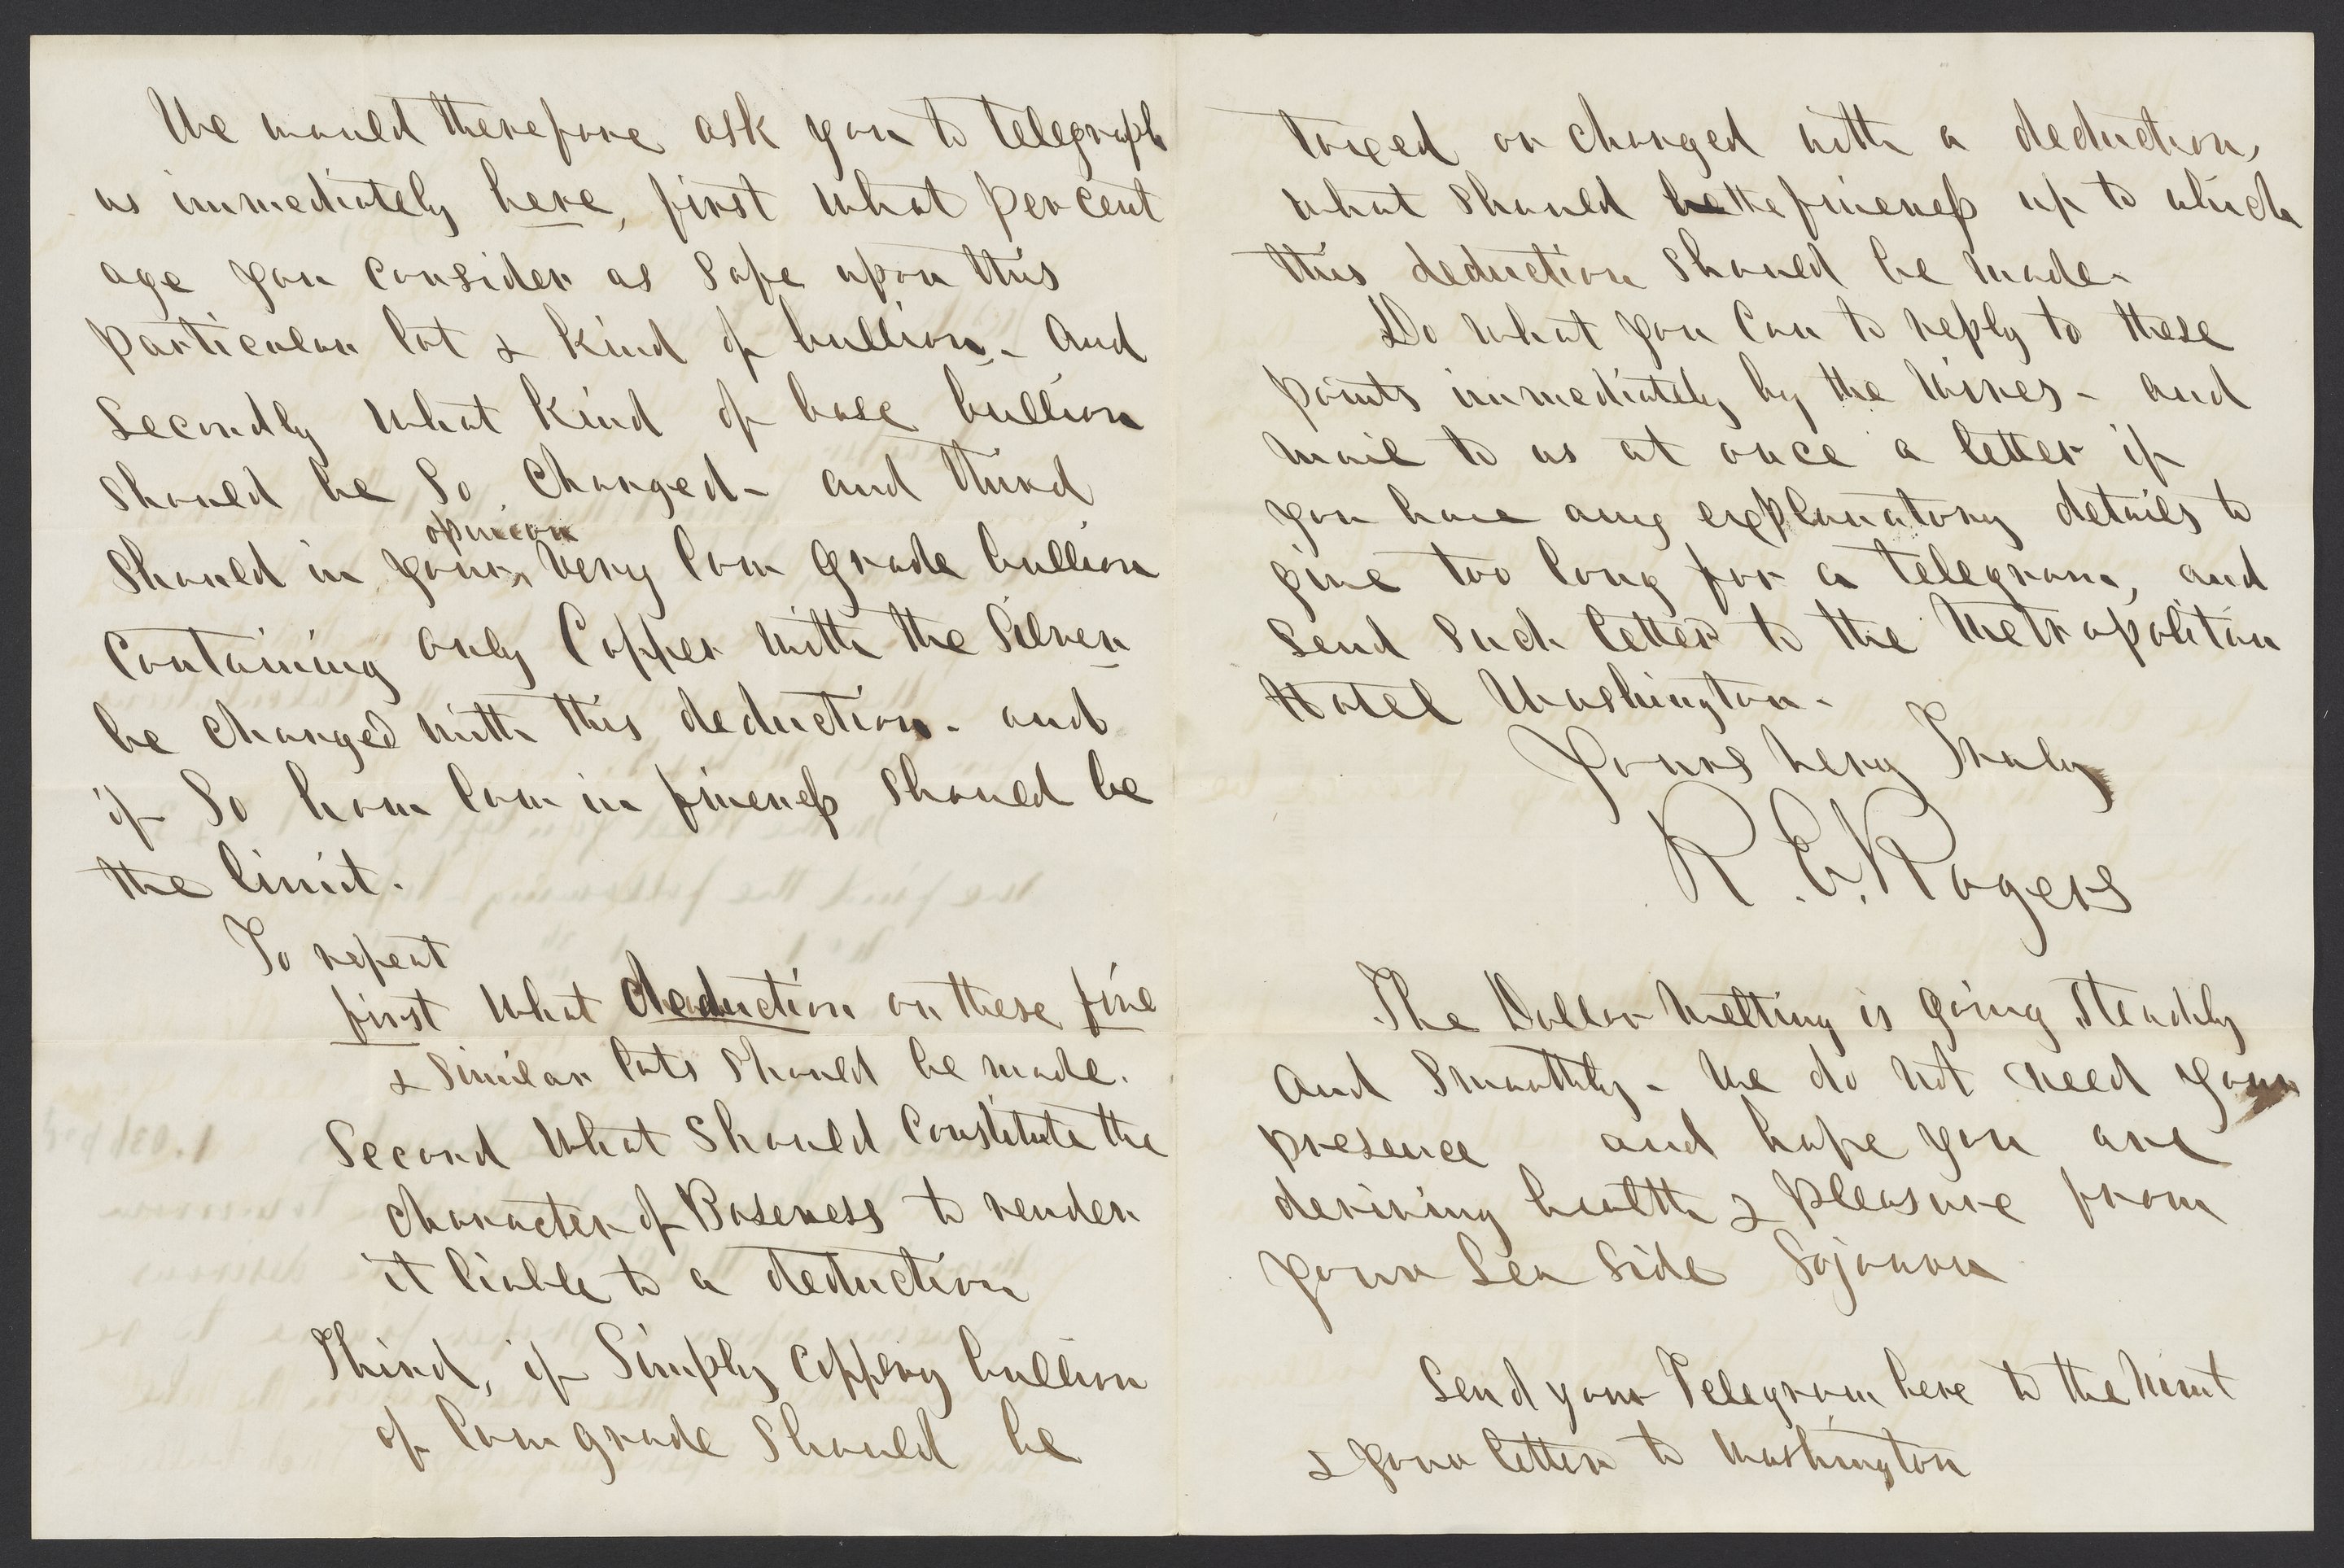 We would therefore ask you to telegraph
us immediately here, first what per cent
age you consider as safe upon this
particular lot & kind of bullion - And
Secondly what kind of base bullion
should be so charged - and third
opinion
should in your very low grade bullion
containing only Copper with the Silver
be charged with this deduction - and
if so how low in fineness should be
the limit.
To repeat
first what deduction on these five
& similar lots should be made.
Second what should constitute the
character of Baseness to render
it liable to a deduction
Third, if simply coppery bullion
of low grade should be
taxed or charged with a deduction,
what should be the fineness up to which
this deduction should be made.
Do what you can to reply to these
points immediately by the wires - and
mail to us at once a letter if
you have any explanatory details to
give too long for a telegram, and
send such letter to the Metropolitan
Hotel Washington.
Yours very Truly
R. E. Rogers
The Dollar melting is going steadily
and smoothly - We do not need your
presence and hope you are
deriving health & pleasure from
your Sea Side Sojourn
Send your Telegram here to the Mint
& your letter to Washington